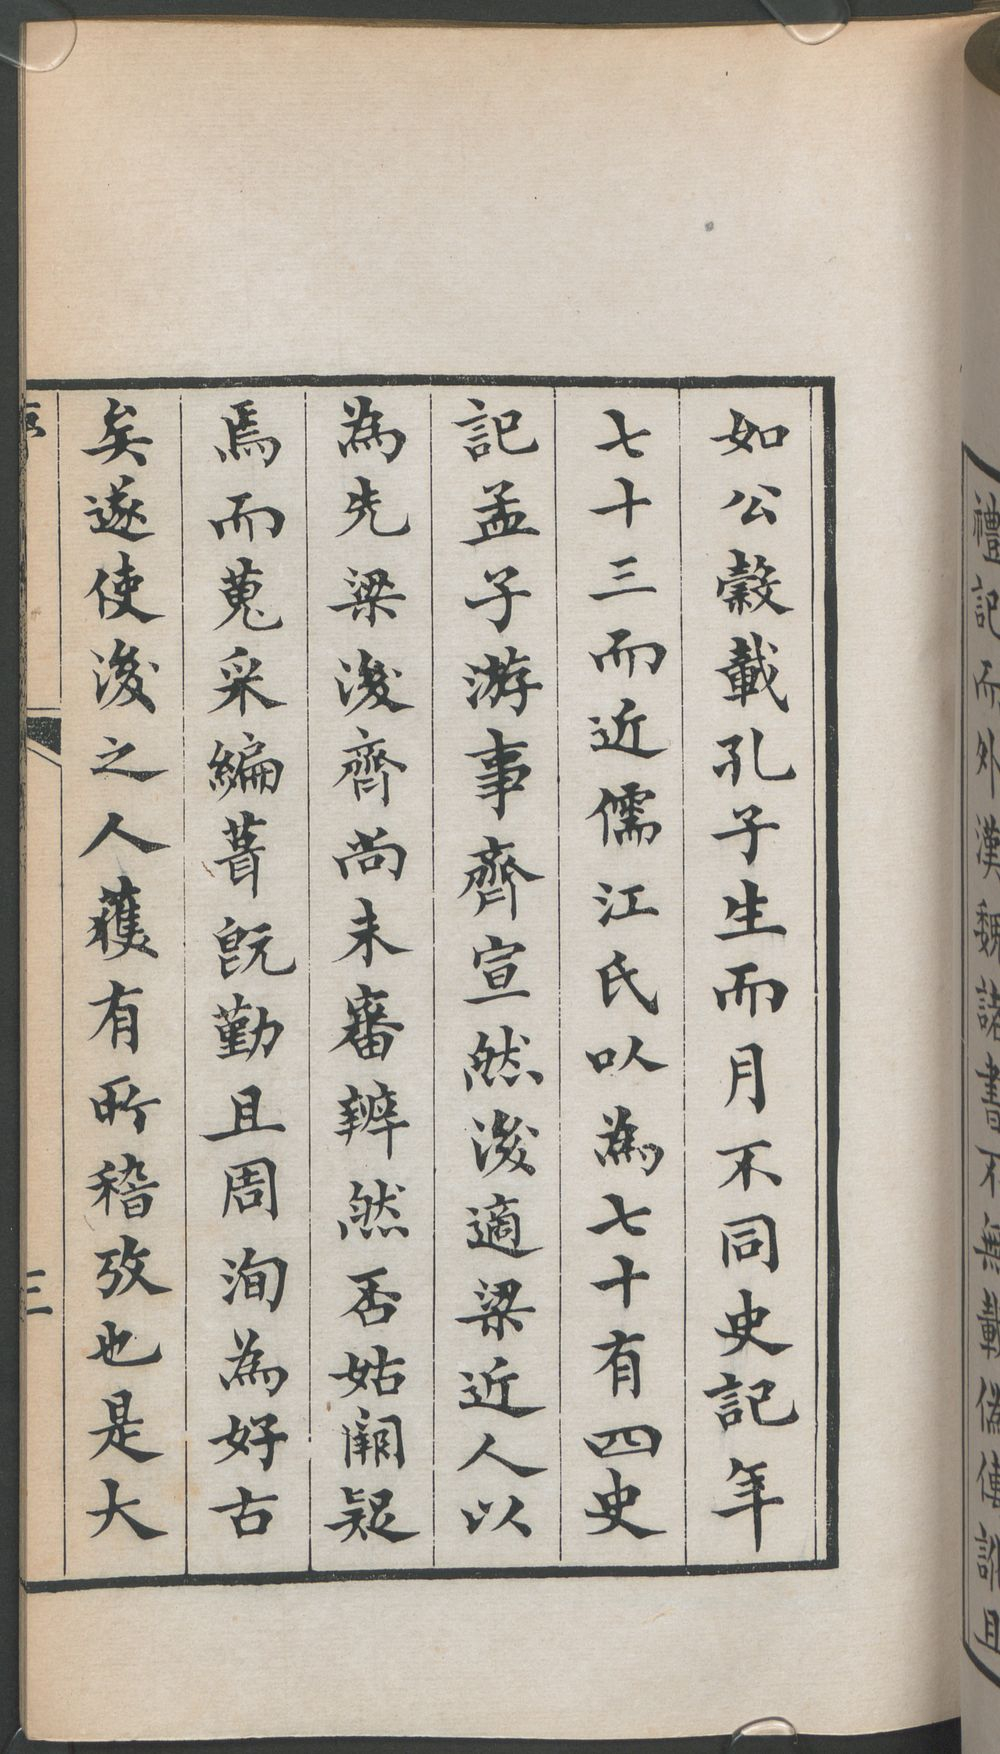 如公穀載孔子生而月不同史記年
七十三而近儒江氏以為七十有四史
記孟子游事齊宣然後適梁近人以
為先梁後齊尚未審辨然否姑闕疑
焉而蒐采編葺既勤且周洵為好古
矣遂使後之人獲有所稽攷也是大
三
禮記而外漢魏諸書不無載偽傳訛且